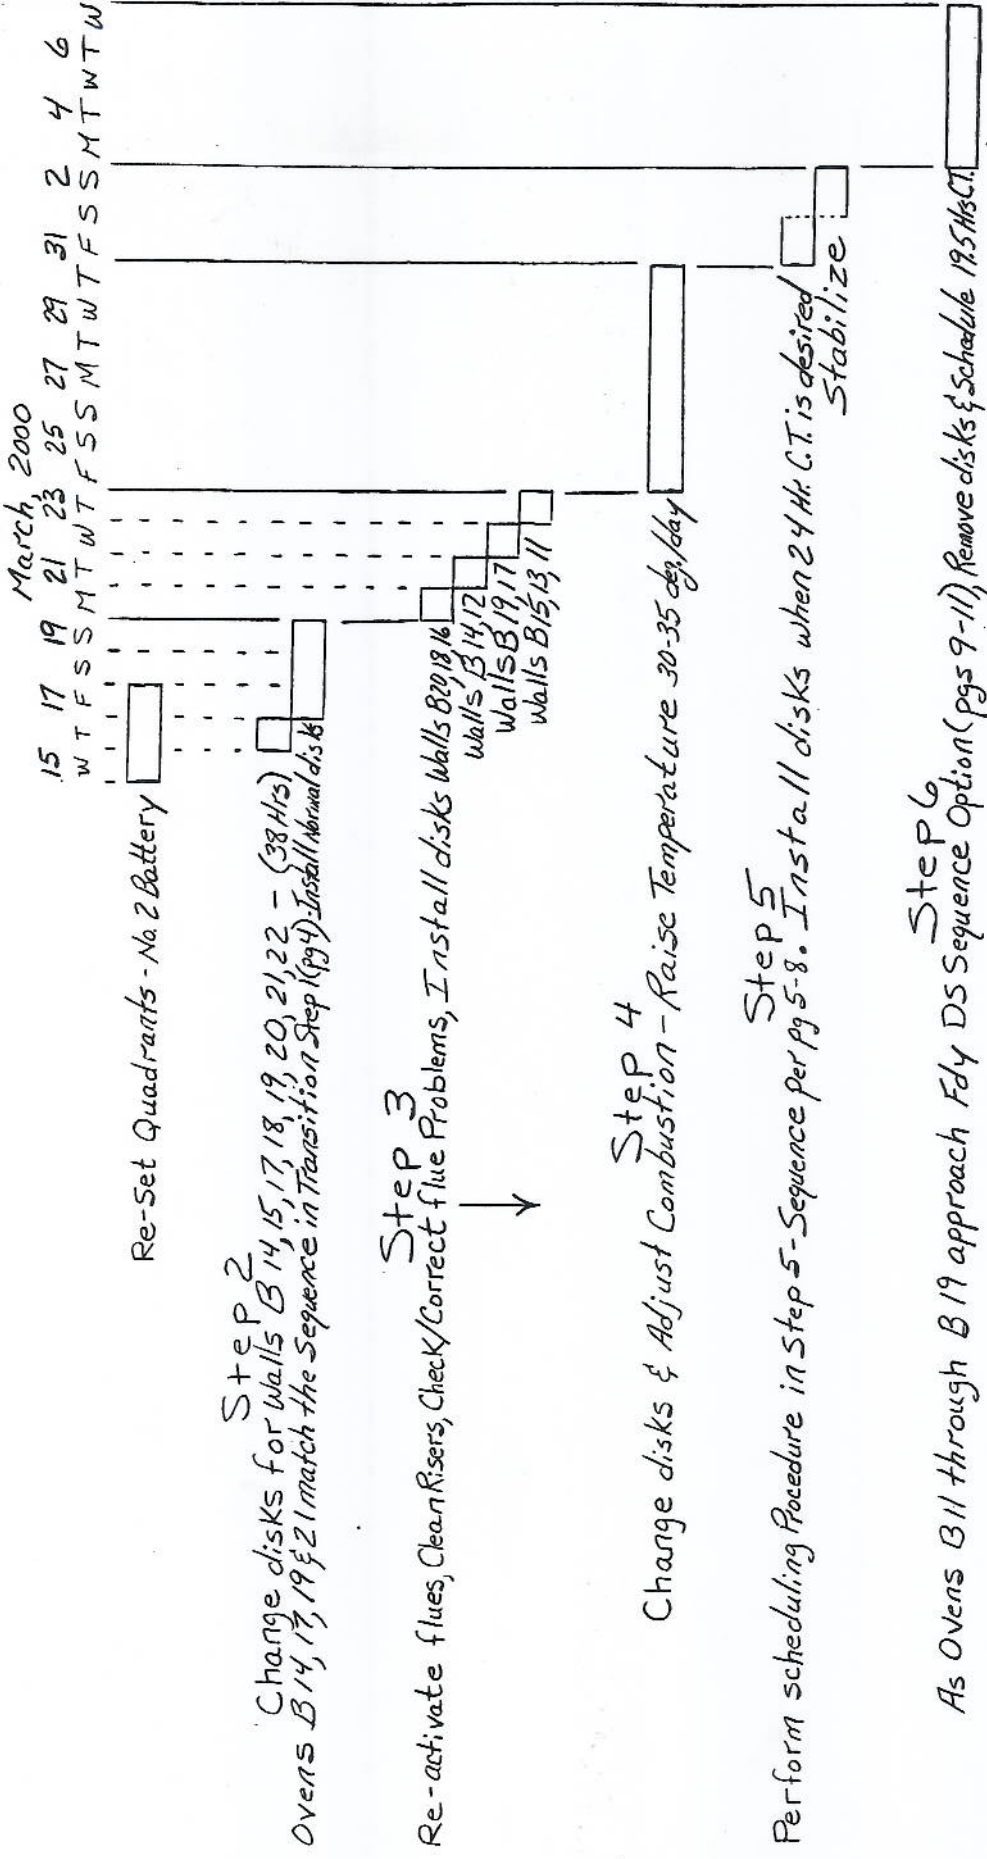 March, 2000
15 17 19 21 23 25 27 29 31 2 4 6
W T F S S M T W T F S S M T W T F S S M T W T W
Re-Set Quadrants - No. 2 Battery
Step 2
Change disks for Walls B 14, 15, 17, 18, 19, 20, 21, 22 - (38 Hrs)
Ovens B 14, 17, 19 & 21 match the Sequence in Transition Step 1 (pg 4)-Install Normal disks
Step 3
Re-activate flues, Clean Risers, Check/Correct flue Problems, Install disks Walls B20, 18, 16
Walls B 14, 12
Walls B 19, 17
Walls B 15, 13, 11
Step 4
Change disks & Adjust Combustion - Raise Temperature 30-35 deg./day
Step 5
Perform scheduling Procedure in Step 5 - Sequence per pg 5-8. Install disks when 24 Hr. C.T. is desired
Stabilize
Step 6
As Ovens B11 through B19 approach Fdy DS Sequence Option (pgs 9-11), Remove disks & Schedule 19.5 Hrs C.T.